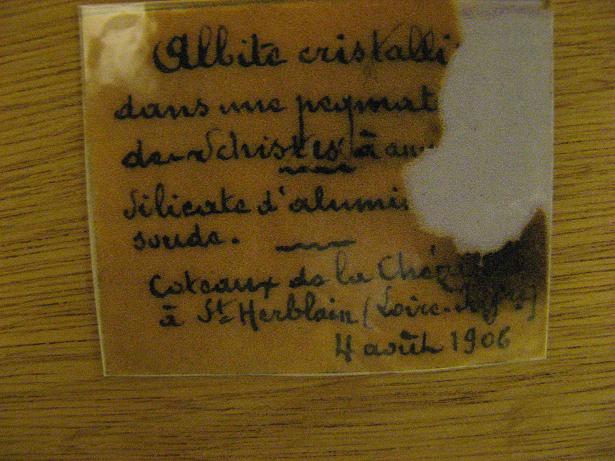 Albite cristalli
dans une pegmat
de Schistes à am
Silicate d'alumi
soude.
Coteaux de la
à St Herblain (Loire-Infre)
4 août 1906